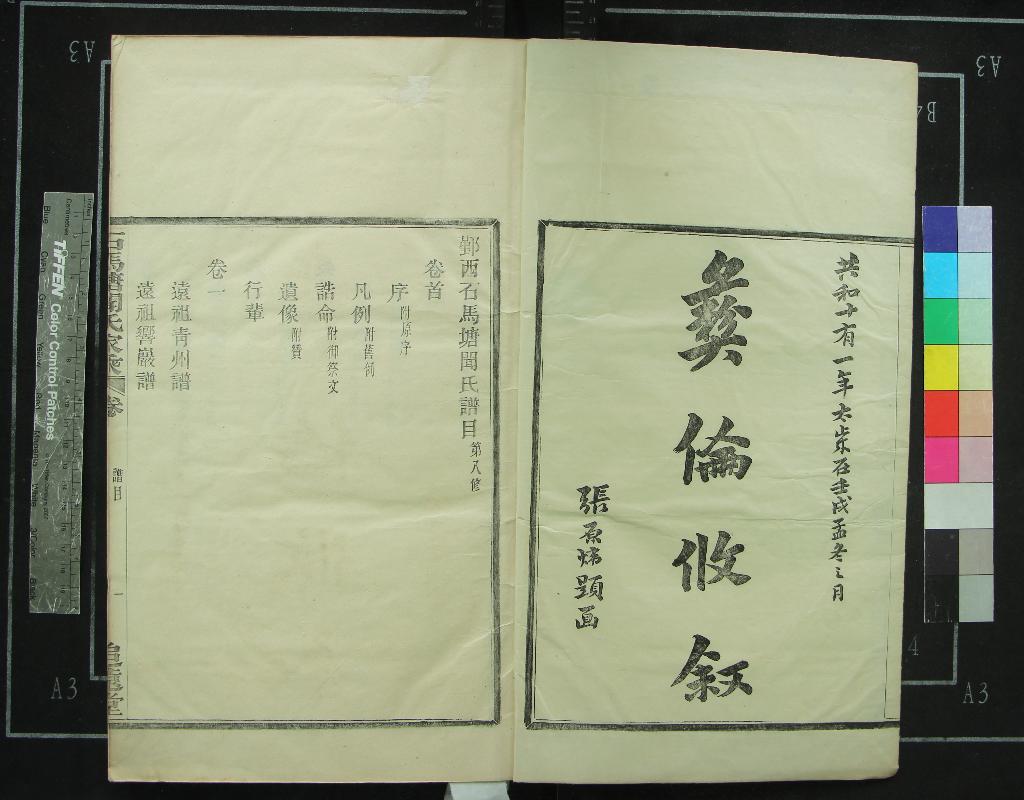 共和十有一年太歲在壬戌孟冬之月
彝倫攸叙
張原煒題耑
鄞西石馬塘聞氏譜目第八修
卷首
序附原序
凡例附舊例
誥命附御祭文
遺像附贊
行輩
卷一
遠祖青州譜
遠祖響巖譜
石馬塘聞氏家乘
卷
譜目
一
A3
A3
B4
A3
A3
4
TIFFEN Color Control Patches
Blue
Cyan
Green
Yellow
Red
Magenta
White
3/Color
Black